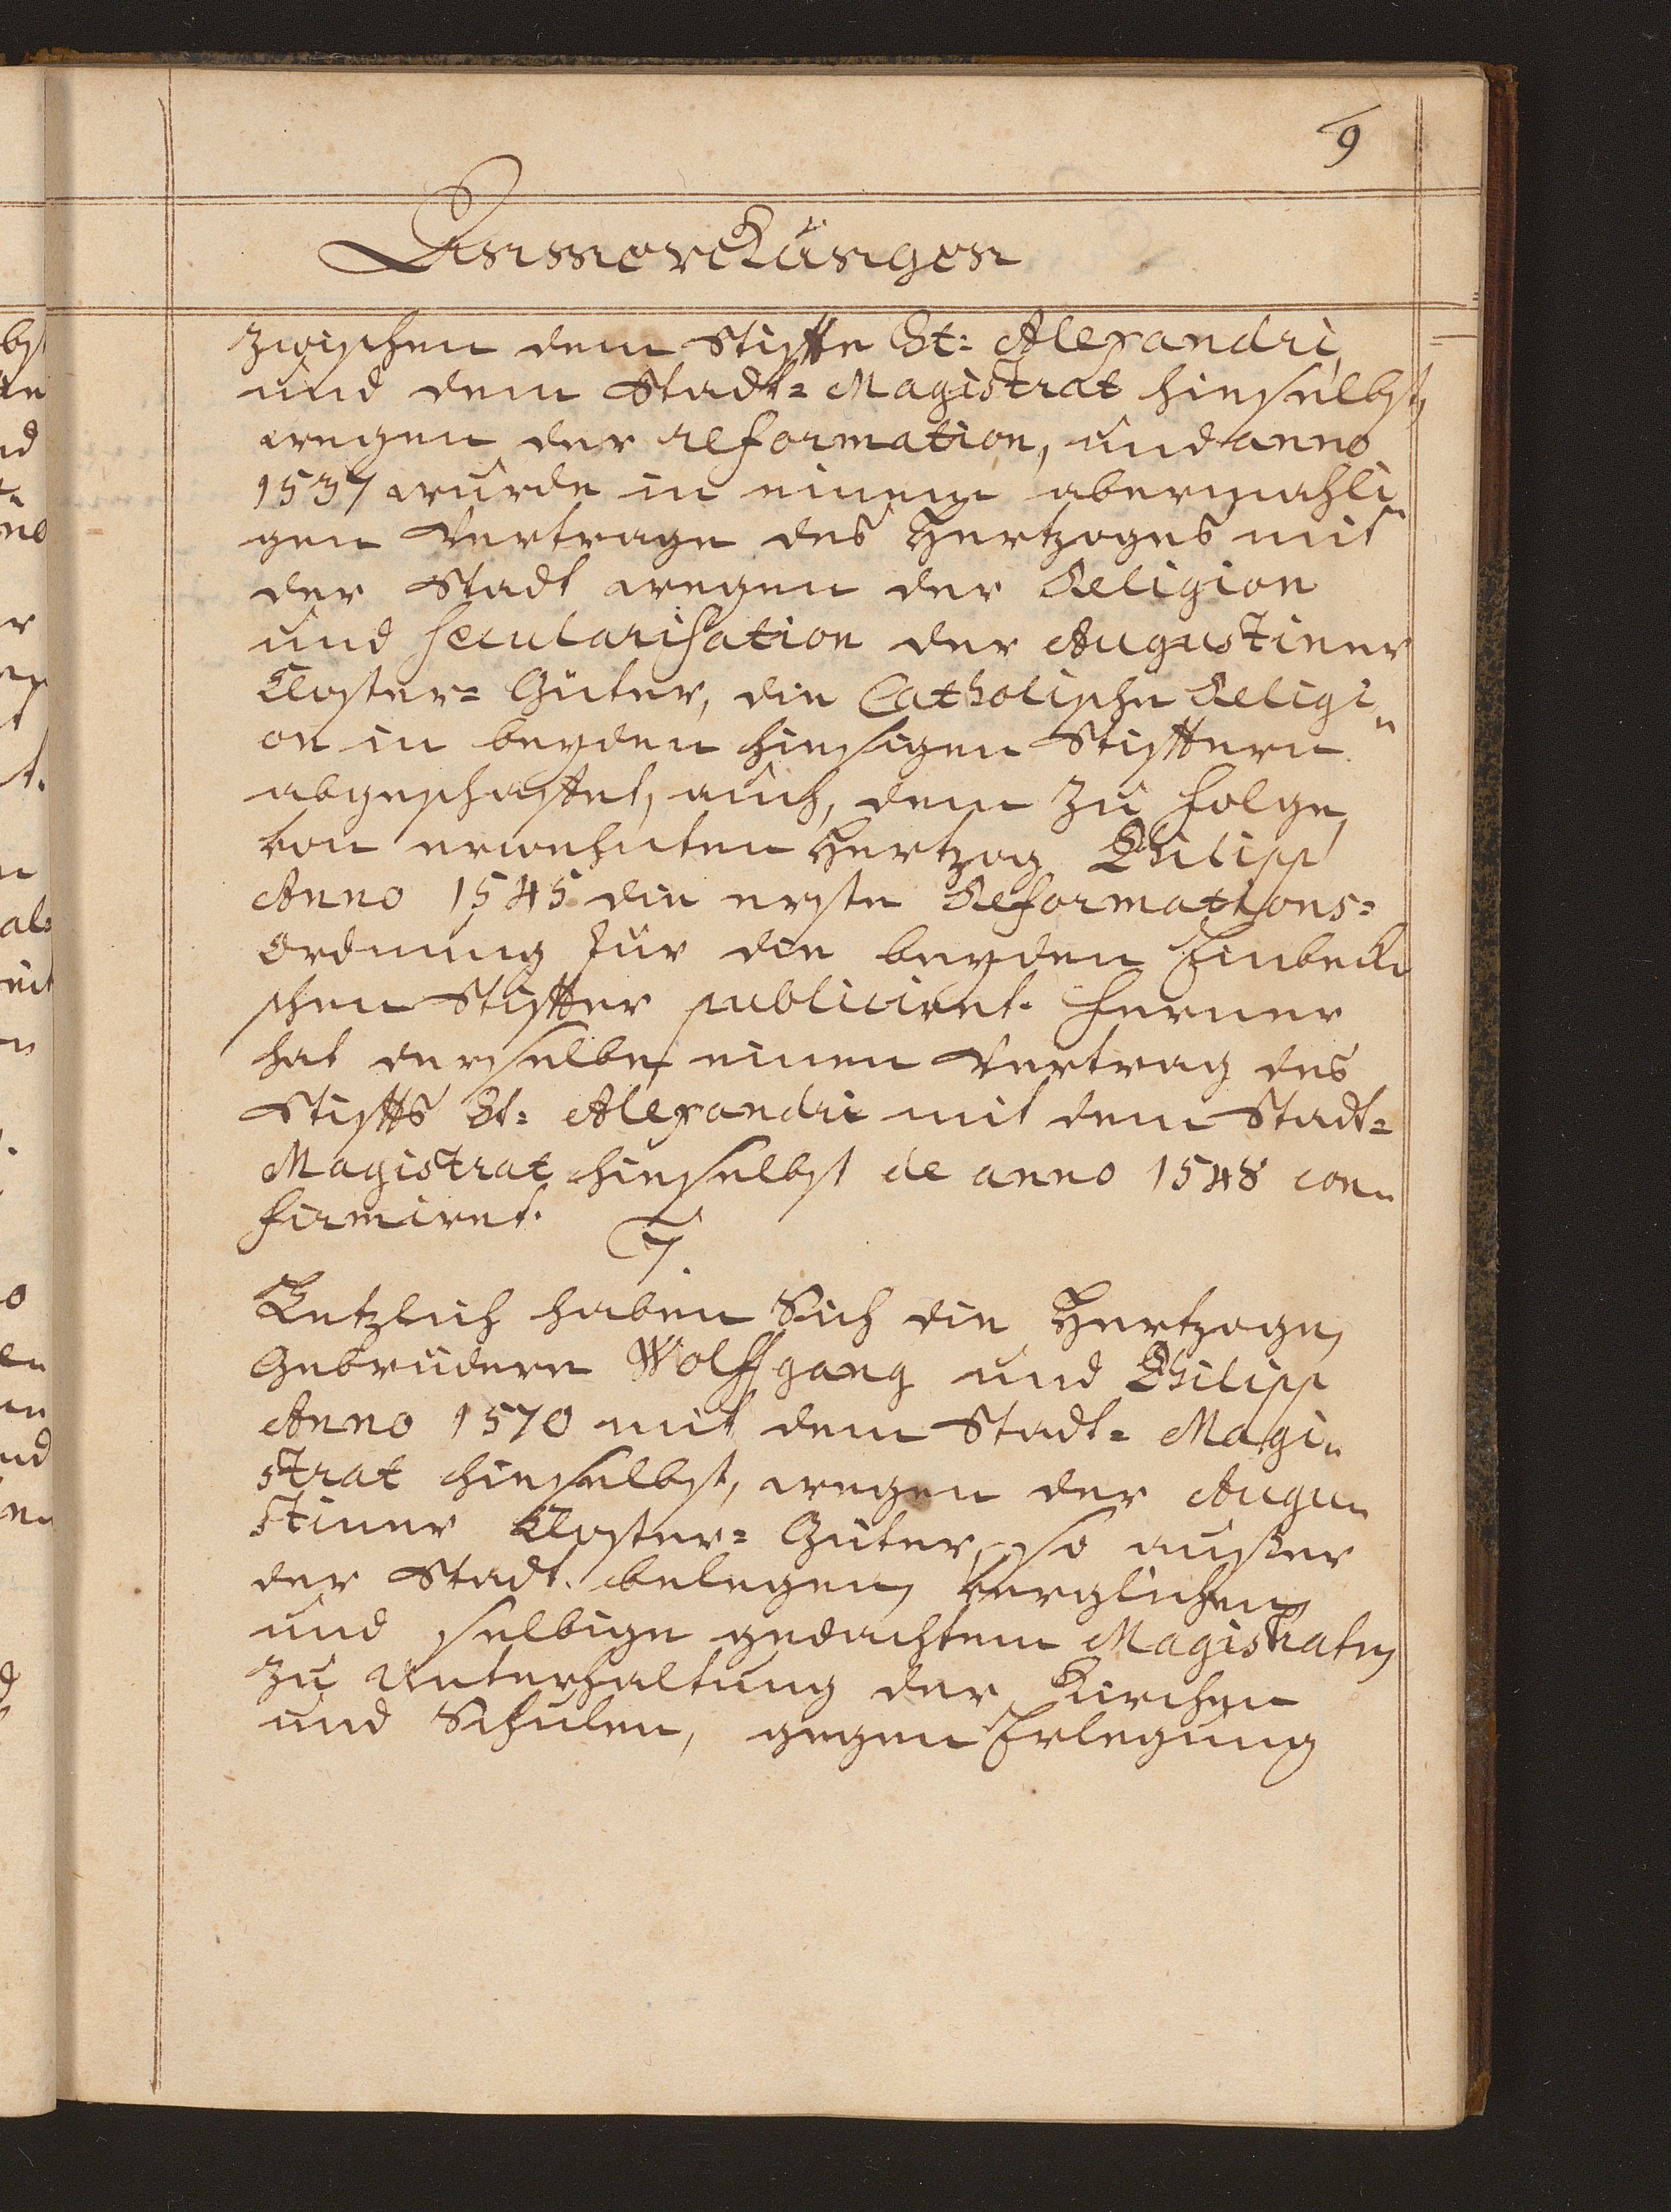 9
Anmerckungen
zwischen dem Stiffte St: Alexandri
und dem Stadt= Magistrat hieselbst,
wegen der reformation, und anno
1537 wurde in einem abermahli„
gen Vertrage des Hertzoges mit
der Stadt wegen der Religion
und secularisation der Augustiner
Closter= Güter, die Catholische Religi„
on in beyden hiesigen Stifftern
abgeschaffet, auch, dem zu folge,
von erwehnten Hertzog Philipp
Anno 1545 die erste Reformations=
Ordnung für die beyden Einbecki
schen Stiffter publiciret. Ferner
hat derselbe einen Vertrag des
Stiffts St: Alexandri mit dem Stadt=
Magistrat hieselbst de anno 1548 con„
firmiret.
7.
Letzlich haben Sich die Hertzoge,
Gebrüdere Wolffgang und Philipp
Anno 1570 mit dem Stadt= Magi„
strat hieselbst, wegen der Augu„
stiner Closter= Güter, so außer
der Stadt belegen, verglichen,
und selbige gedachtem Magistrate,
zu Unterhaltung der Kirchen
und Schulen, gegen Erlegung